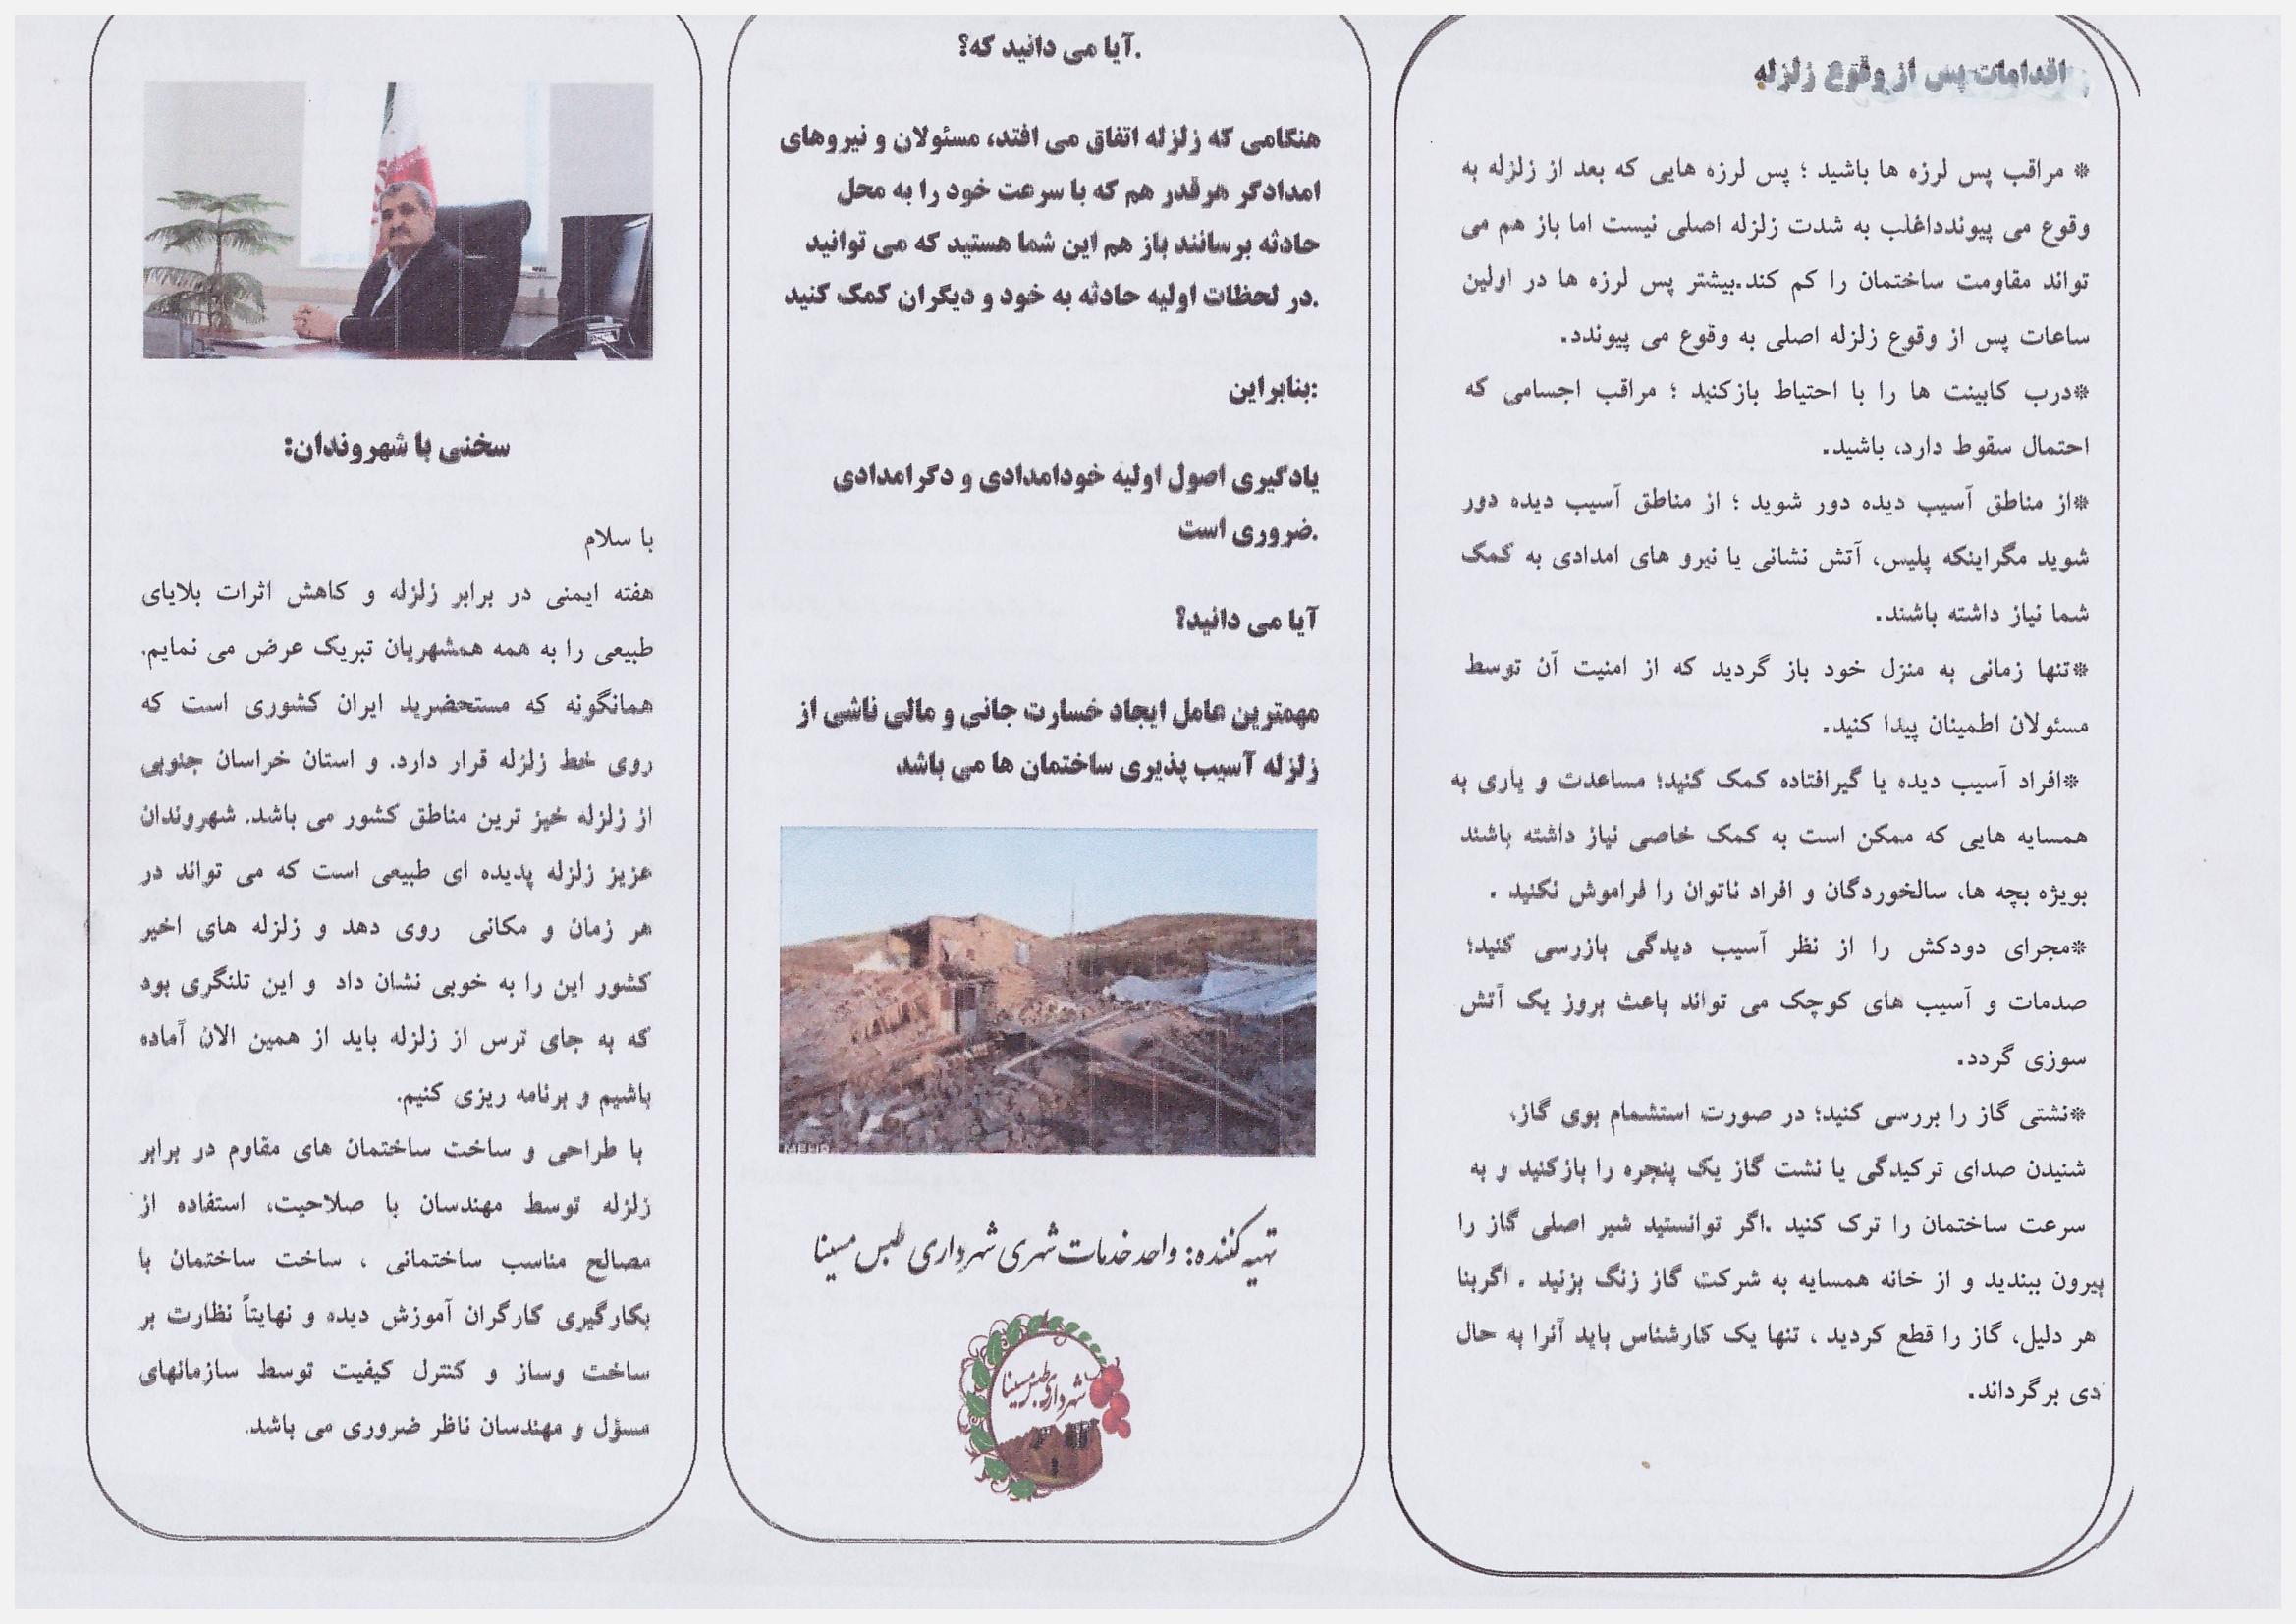 اقدامات پس از وقوع زلزله
* مراقب پس لرزه ها باشید ؛ پس لرزه هایی که بعد از زلزله به
وقوع می پیوندداغلب به شدت زلزله اصلی نیست اما باز هم می
تواند مقاومت ساختمان را کم کند.بیشتر پس لرزه ها در اولین
ساعات پس از وقوع زلزله اصلی به وقوع می پیوندد.
*درب کابینت ها را با احتیاط بازکنید ؛ مراقب اجسامی که
احتمال سقوط دارد، باشید.
*از مناطق آسیب دیده دور شوید ؛ از مناطق آسیب دیده دور
شوید مگراینکه پلیس، آتش نشانی یا نیرو های امدادی به کمک
شما نیاز داشته باشند.
*تنها زمانی به منزل خود باز گردید که از امنیت آن توسط
مسئولان اطمینان پیدا کنید.
*افراد آسیب دیده یا گیرافتاده کمک کنید؛ مساعدت و یاری به
همسایه هایی که ممکن است به کمک خاصی نیاز داشته باشند
بویژه بچه ها، سالخوردگان و افراد ناتوان را فراموش نکنید .
*مجرای دودکش را از نظر آسیب دیدگی بازرسی کنید؛
صدمات و آسیب های کوچک می تواند باعث بروز یک آتش
سوزی گردد.
*نشتی گاز را بررسی کنید؛ در صورت استشمام بوی گاز،
شنیدن صدای ترکیدگی یا نشت گاز یک پنجره را بازکنید و به
سرعت ساختمان را ترک کنید .اگر توانستید شیر اصلی گاز را
بیرون ببندید و از خانه همسایه به شرکت گاز زنگ بزنید . اگربنا
هر دلیل، گاز را قطع کردید ، تنها یک کارشناس باید آنرا به حال
دی برگرداند.
.آیا می دانید که؟
هنگامی که زلزله اتفاق می افتد، مسئولان و نیروهای
امدادگر هرقدر هم که با سرعت خود را به محل
حادثه برسانند باز هم این شما هستید که می توانید
.در لحظات اولیه حادثه به خود و دیگران کمک کنید
:بنابراین
یادگیری اصول اولیه خودامدادی و دگرامدادی
.ضروری است
آیا می دانید؟
مهمترین عامل ایجاد خسارت جانی و مالی ناشی از
زلزله آسیب پذیری ساختمان ها می باشد
MEHR
تهیه کننده: واحد خدمات شهری شهرداری طبس مسینا
شهرداری طبس مسینا
سخنی با شهروندان:
با سلام
هفته ایمنی در برابر زلزله و کاهش اثرات بلایای
طبیعی را به همه همشهریان تبریک عرض می نمایم.
همانگونه که مستحضرید ایران کشوری است که
روی خط زلزله قرار دارد. و استان خراسان جنوبی
از زلزله خیز ترین مناطق کشور می باشد. شهروندان
عزیز زلزله پدیده ای طبیعی است که می تواند در
هر زمان و مکانی روی دهد و زلزله های اخیر
کشور این را به خوبی نشان داد و این تلنگری بود
که به جای ترس از زلزله باید از همین الان آماده
باشیم و برنامه ریزی کنیم.
با طراحی و ساخت ساختمان های مقاوم در برابر
زلزله توسط مهندسان با صلاحیت، استفاده از
مصالح مناسب ساختمانی ، ساخت ساختمان با
بکارگیری کارگران آموزش دیده و نهایتاً نظارت بر
ساخت وساز و کنترل کیفیت توسط سازمانهای
مسؤل و مهندسان ناظر ضروری می باشد.